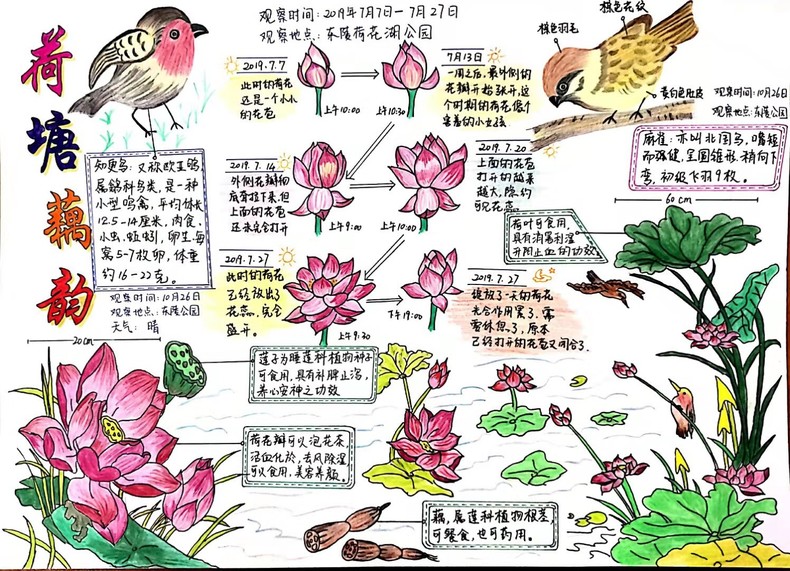 荷塘藕韵
观察时间:2019年7月7日-7月27日
观察地点:东陵荷花湖公园
2019.7.7
此时的荷花
还是一个小小
的花苞
上午10:00
上午10:30
7月13日
一周之后,最外侧的
花瓣开始张开,这
个时期的荷花
棕色羽毛
棕色花纹
黄白色肚皮
观察时间:10月26日
观察地点:东陵公园
麻雀:亦叫北国鸟,嘴短
而强健,呈圆锥形,稍向下
弯,初级飞羽9枚。
知更鸟:又称欧亚鸲
属鹟科鸟类,是一种
小型鸣禽,平均体长
12.5-14厘米,肉食,
小虫,蚯蚓,卵生,每
窝5-7枚卵,体重
约16-22克。
观察时间:10月26日
观察地点:东陵公园
天气:晴
2019.7.14
外侧花瓣彻
底耷拉下来,但
上面的花苞
还未完全打开
上午9:00
上午10:00
2019.7.20
上面的花苞
打开的越来
越大,隐约
可见花蕊
2019.7.27
此时的荷花
已经放出了
花蕊,完全
盛开。
上午9:30
下午19:00
2019.7.27
绽放了一天的荷花
光合作用累了,需
要休息了,原本
已经打开的花苞又闭合了.
荷叶可食用,
具有消暑利湿
升阳止血的功效
60cm
20cm
莲子为睡莲科植物种子
可食用,具有补脾止泻,
养心安神之功效
荷花瓣可以泡花茶,
活血化於,去风除湿
可以食用,美容养颜。
藕,属莲科植物根茎,
可餐食,也可药用。